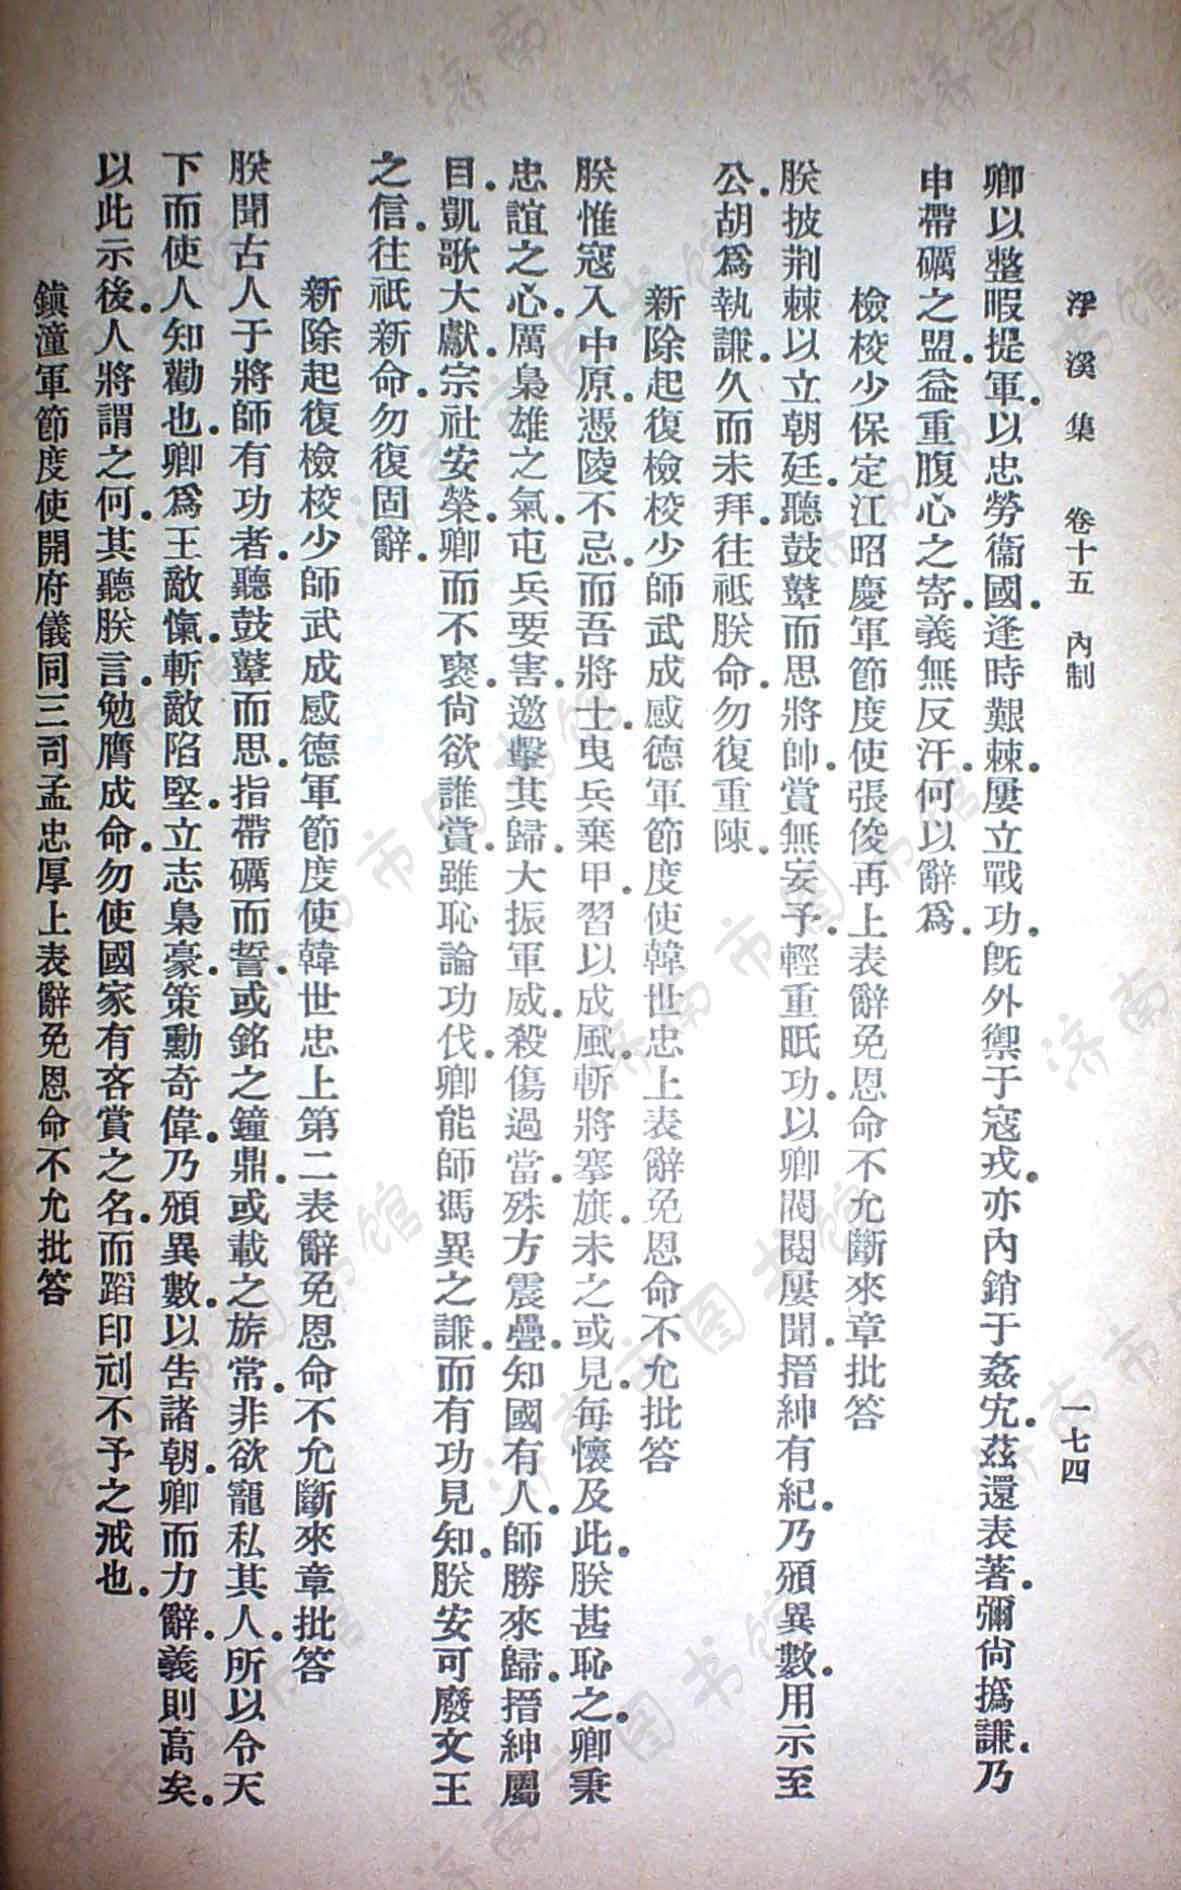 浮溪集 卷十五 內制 一七四
卿以整暇提軍.以忠勞衞國.逢時艱棘.屢立戰功.旣外禦于寇戎.亦內銷于姦宄.茲還表著.彌尙撝謙.乃
申帶礪之盟.益重腹心之寄.義無反汗.何以辭爲.
檢校少保定江昭慶軍節度使張俊再上表辭免恩命不允斷來章批答
朕披荆棘以立朝廷.聽鼓鼙而思將帥.賞無妄予.輕重眂功.以卿閥閱屢聞.搢紳有紀.乃頒異數.用示至
公.胡爲執謙.久而未拜.往祗朕命.勿復重陳.
新除起復檢校少師武成感德軍節度使韓世忠上表辭免恩命不允批答
朕惟寇入中原.憑陵不忌.而吾將士.曳兵棄甲.習以成風.斬將搴旗.未之或見.每懷及此.朕甚恥之.卿秉
忠誼之心.厲梟雄之氣.屯兵要害.邀擊其歸.大振軍威.殺傷過當.殊方震疊.知國有人.師勝來歸.搢紳屬
目.凱歌大獻.宗社安榮.卿而不褒.尙欲誰賞.雖恥論功伐.卿能師馮異之謙.而有功見知.朕安可廢文王
之信.往祗新命.勿復固辭.
新除起復檢校少師武成感德軍節度使韓世忠上第二表辭免恩命不允斷來章批答
朕聞古人于將師有功者.聽鼓鼙而思.指帶礪而誓.或銘之鐘鼎.或載之旂常.非欲寵私其人.所以令天
下而使人知勸也.卿爲王敵愾.斬敵陷堅.立志梟豪.策勳奇偉.乃頒異數.以告諸朝.卿而力辭.義則高矣.
以此示後.人將謂之何.其聽朕言.勉膺成命.勿使國家有吝賞之名.而蹈印刓不予之戒也.
鎭潼軍節度使開府儀同三司孟忠厚上表辭免恩命不允批答